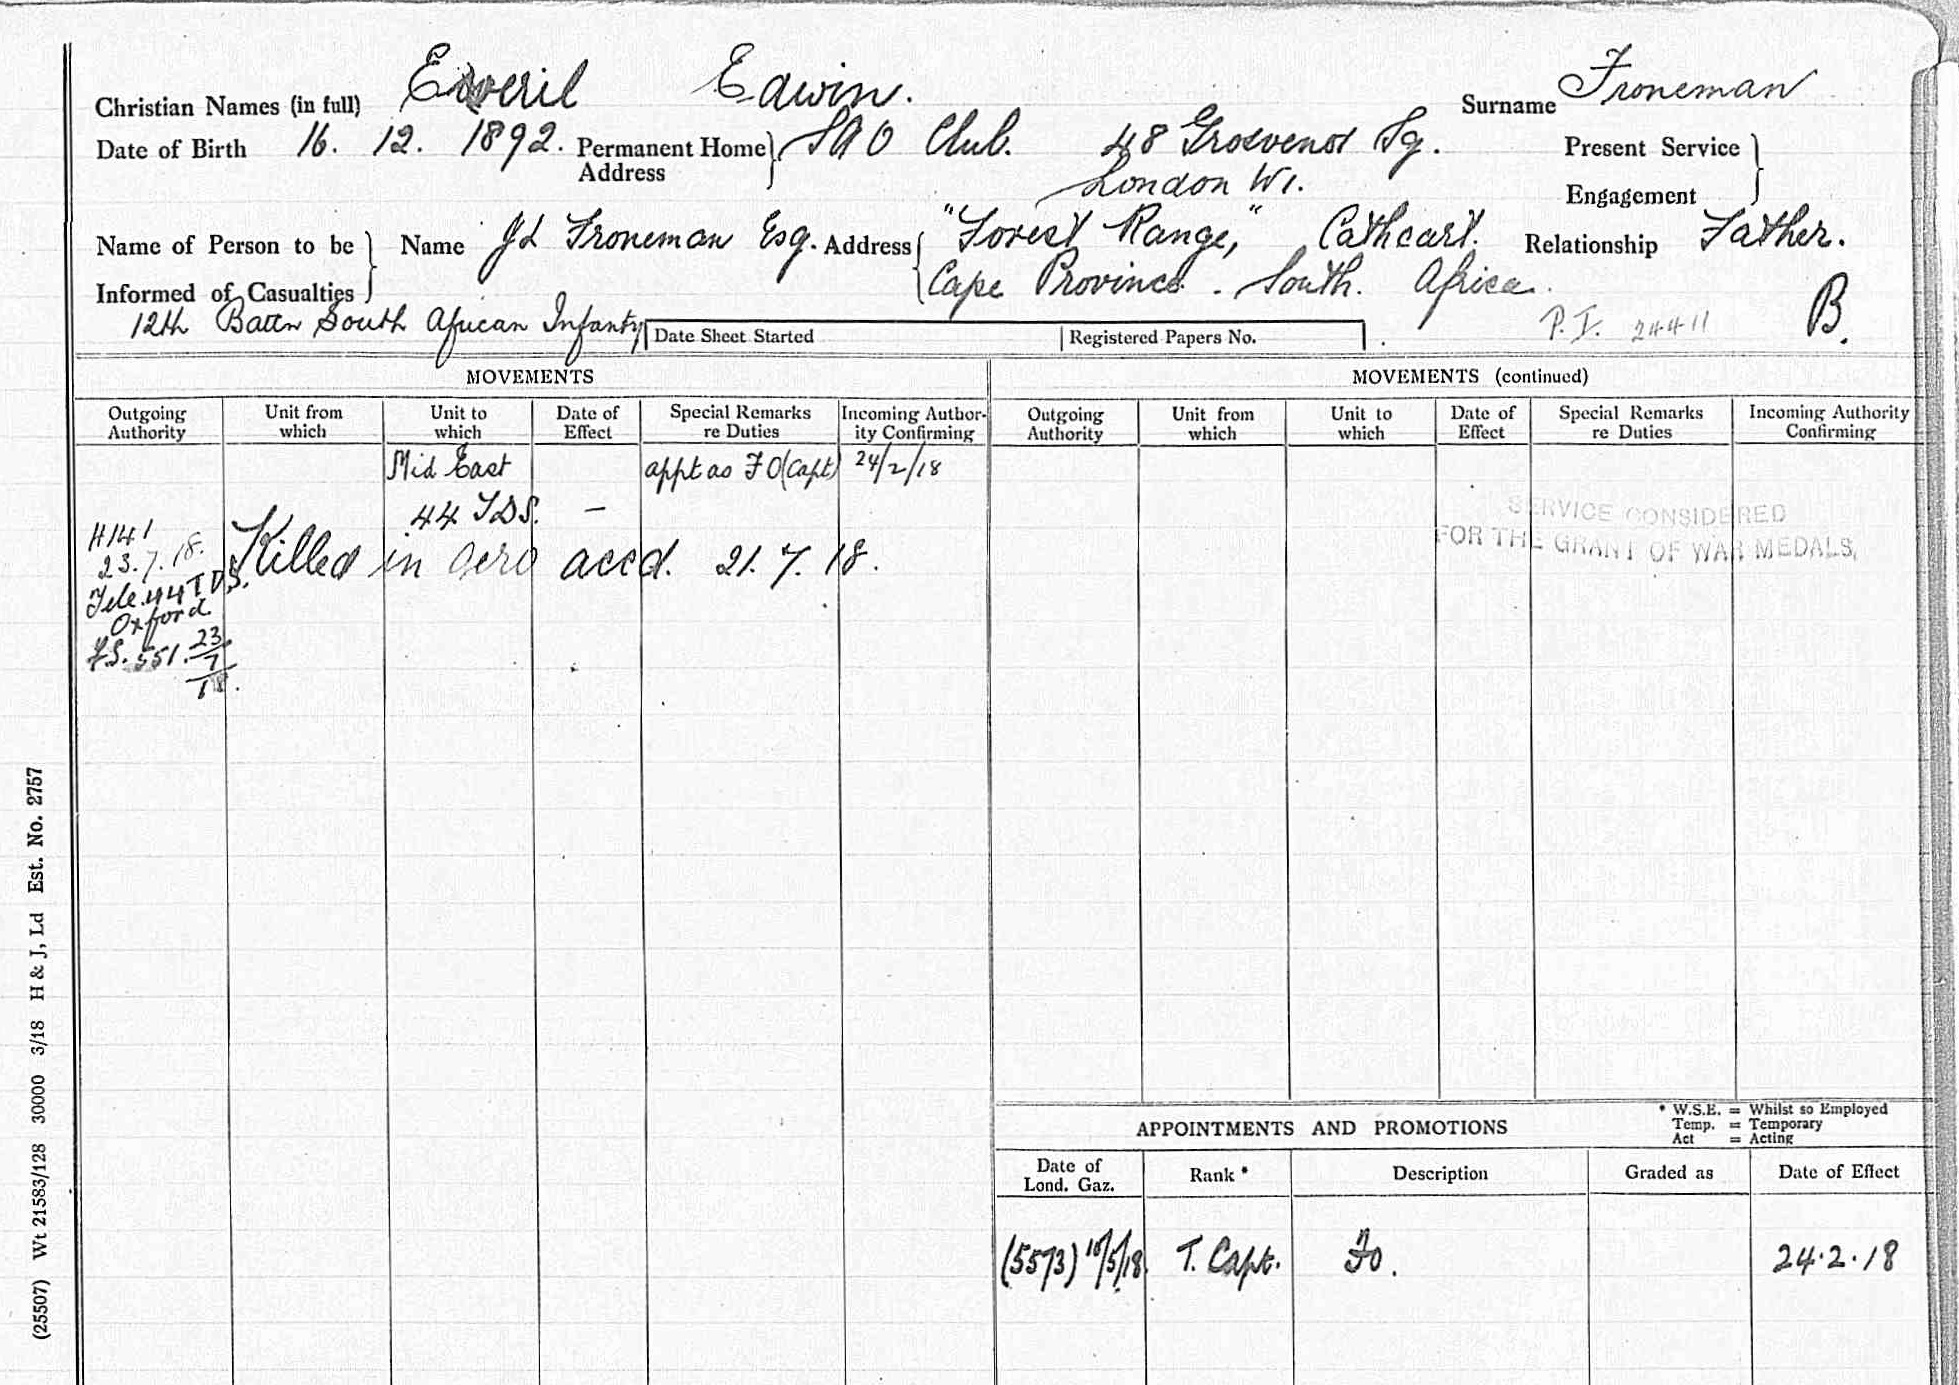 Christian Names (in full) Everil Edwin. Surname Froneman
Date of Birth 16. 12. 1892. Permanent Home Address SAO Club. 48 Grosvenor Sq.
London W1.
Present Service
Engagement
Name of Person to be Informed of Casualties Name JL Froneman Esq. Address "Forest Range," Cathcart. Relationship Father.
Cape Province. South. Africa.
12th Battn South African Infantry Date Sheet Started Registered Papers No. P.I. 24411 B.
MOVEMENTS MOVEMENTS (continued)
Outgoing Authority Unit from which Unit to which Date of Effect Special Remarks re Duties Incoming Authority Confirming Outgoing Authority Unit from which Unit to which Date of Effect Special Remarks re Duties Incoming Authority Confirming
Mid East appt as FO (Capt) 24/2/18
44 TDS. —
H141
23.7.18. Killed in aero accd. 21. 7. 18.
Tele. 44 T.D.S.
Oxford.
FS. 551. 23/7/18.
SERVICE CONSIDERED
FOR THE GRANT OF WAR MEDALS.
* W.S.E. = Whilst so Employed
Temp. = Temporary
Act = Acting
APPOINTMENTS AND PROMOTIONS
Date of Lond. Gaz. Rank * Description Graded as Date of Effect
(5573) 10/5/18. T. Capt. FO. 24.2.18
(25507) Wt 21583/128 30000 3/18 H & J, Ld Est. No. 2757